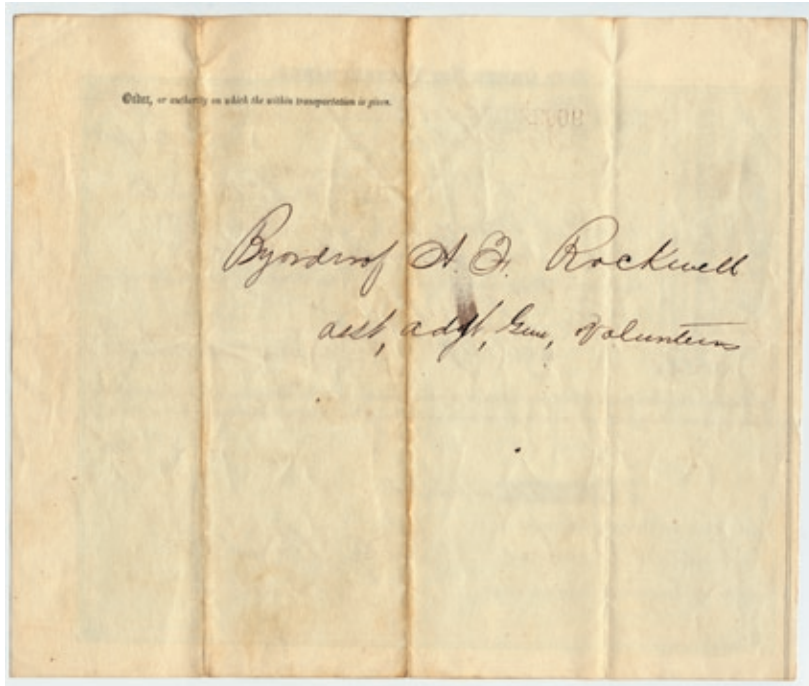 Order, or authority on which the within transportation is given.
By order of A. F. Rockwell
asst, adjt, Gen, Volunteers